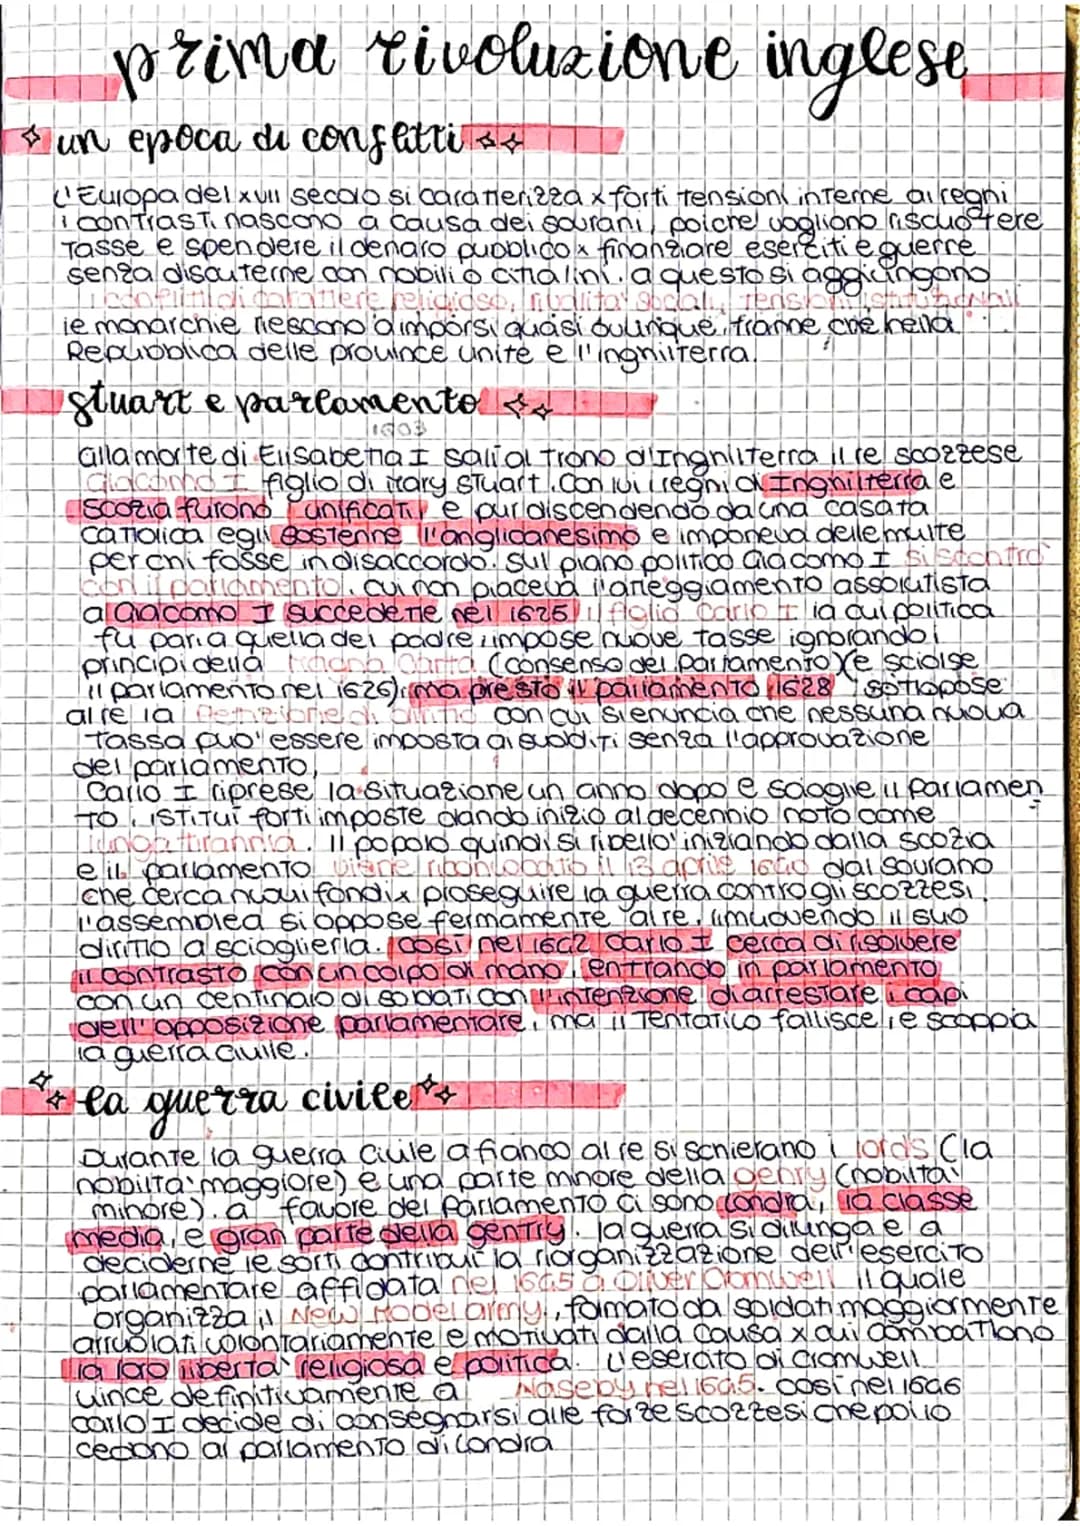 prima rivoluzione inglese
un epoca di conflitti
L'Europa del XVII secolo si caratterizza x forti tensioni interne ai regni
i contrasti nascono a causa dei sovrani, poiche' vogliono riscuotere
tasse e spendere il denaro pubblico x finanziare eserciti e guerre
senza discuterne con nobili o cittadini. a questo si aggiungono
i conflitti di carattere religioso, rivalita' sociali, tensioni istituzionali
le monarchie riescono a imporsi quasi ovunque, tranne che nella
Repubblica delle province unite e l'inghilterra.
stuart e parlamento
1603
alla morte di Elisabetta I sali al trono d'Inghilterra il re scozzese
Giacomo I figlio di Mary Stuart. Con lui i regni di Inghilterra e
Scozia furono unificati e pur discendendo da una casata
cattolica egli sostenne l'anglicanesimo e imponeva delle multe
per chi fosse in disaccordo. Sul piano politico Giacomo I si scontro'
con il parlamento, cui non piaceva l'atteggiamento assolutista
a Giacomo I succedette nel 1625 il figlio Carlo I la cui politica
fu pari a quella del padre, impose nuove tasse ignorando i
principi della Magna Charta (consenso del parlamento) (e sciolse
il parlamento nel 1626), ma presto il parlamento 1628 sottopose
al re la Petizione di diritto con cui si enuncia che nessuna nuova
tassa puo' essere imposta ai sudditi senza l'approvazione
del parlamento,
Carlo I riprese la situazione un anno dopo e scioglie il Parlamen
to, istituì forti imposte dando inizio al decennio noto come
lunga tirannia. Il popolo quindi si ribello' iniziando dalla scozia
e il parlamento viene riconvocato il 13 aprile 1640 dal sovrano
che cerca nuovi fondi x proseguire la guerra contro gli scozzesi,
l'assemblea si oppose fermamente al re, rimuovendo il suo
diritto a scioglierla. così nel 1642 Carlo I cerca di risolvere
il contrasto con un colpo di mano, entrando in parlamento
con un centinaio di soldati con l'intenzione di arrestare i capi
dell'opposizione parlamentare, ma il tentativo fallisce, e scoppia
la guerra civile.
la guerra civile
Durante la guerra civile a fianco al re si schierano i lords (la
nobilta' maggiore) e una parte minore della genry (nobilta'
minore). a favore del Parlamento ci sono Londra, la classe
media, e gran parte della gentry. la guerra si dilunga e a
deciderne le sorti contribuì la riorganizzazione dell'esercito
parlamentare affidata nel 1645 a Oliver Cromwell il quale
organizza il New Model army, formato da soldati maggiormente
arruolati volontariamente e motivati dalla causa x cui combattono
la loro liberta' religiosa e politica. L'esercito di Cromwell
vince definitivamente a Naseby nel 1645. così nel 1646
Carlo I decide di consegnarsi alle forze scozzesi che poi lo
cedono al parlamento di Londra